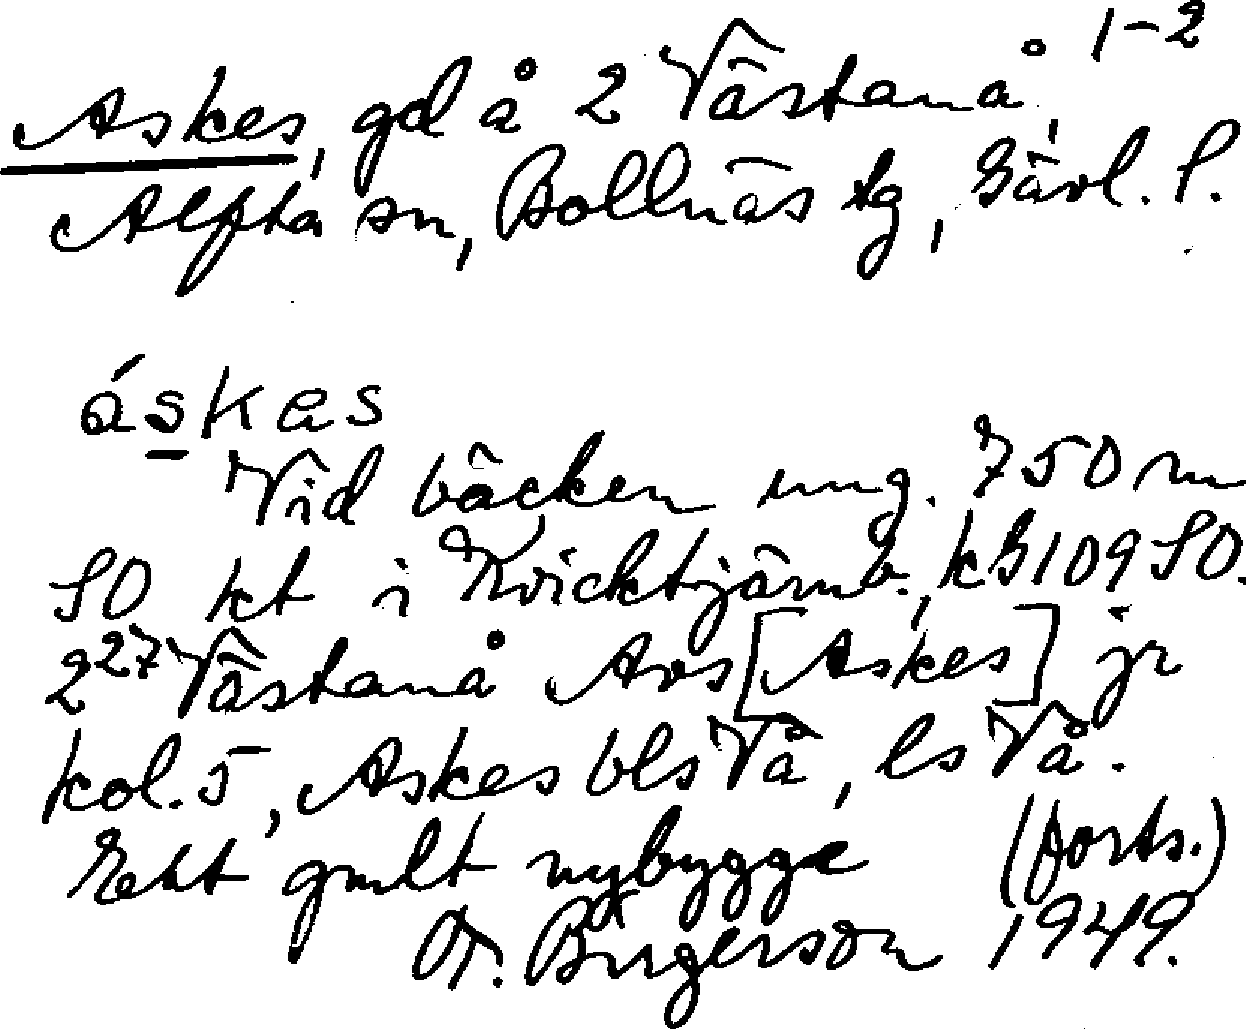 1-2
Askes, gd å 2 Västanå,
Alfta sn, Bollnäs tg, Gävl. l.
áskes
Vid bäcken ung. 750 m
SO kt i Kvicktjärnb., kG109 SO.
2²⁷ Västanå Avs [Askes] jr
kol. 5, Askes bls Vå, ls Vå.
Ett gmlt nybygge (forts.)
O. Birgerson 1949.